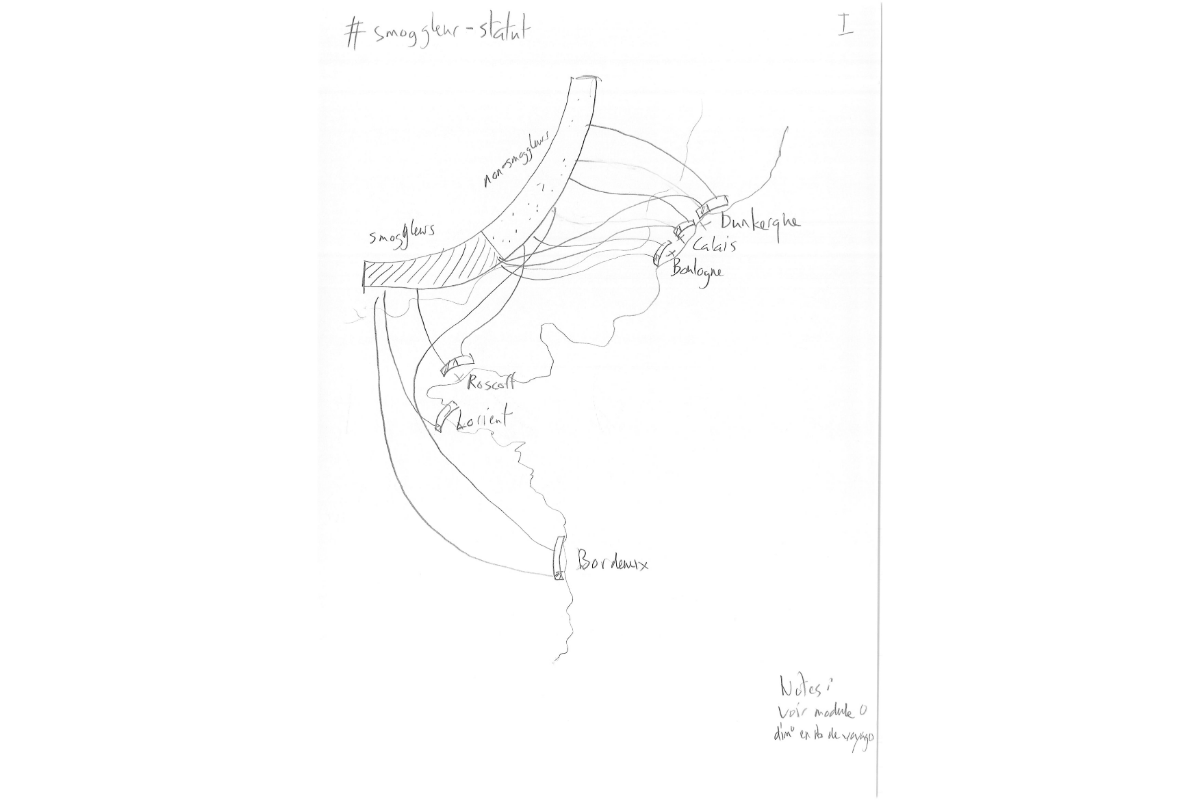 # smoggleur-statut
I
non-smoggleurs
smoggleurs
Dunkerque
Calais
Boulogne
Roscoff
Lorient
Bordeaux
Notes :
voir module 0
dim° en nb de voyage